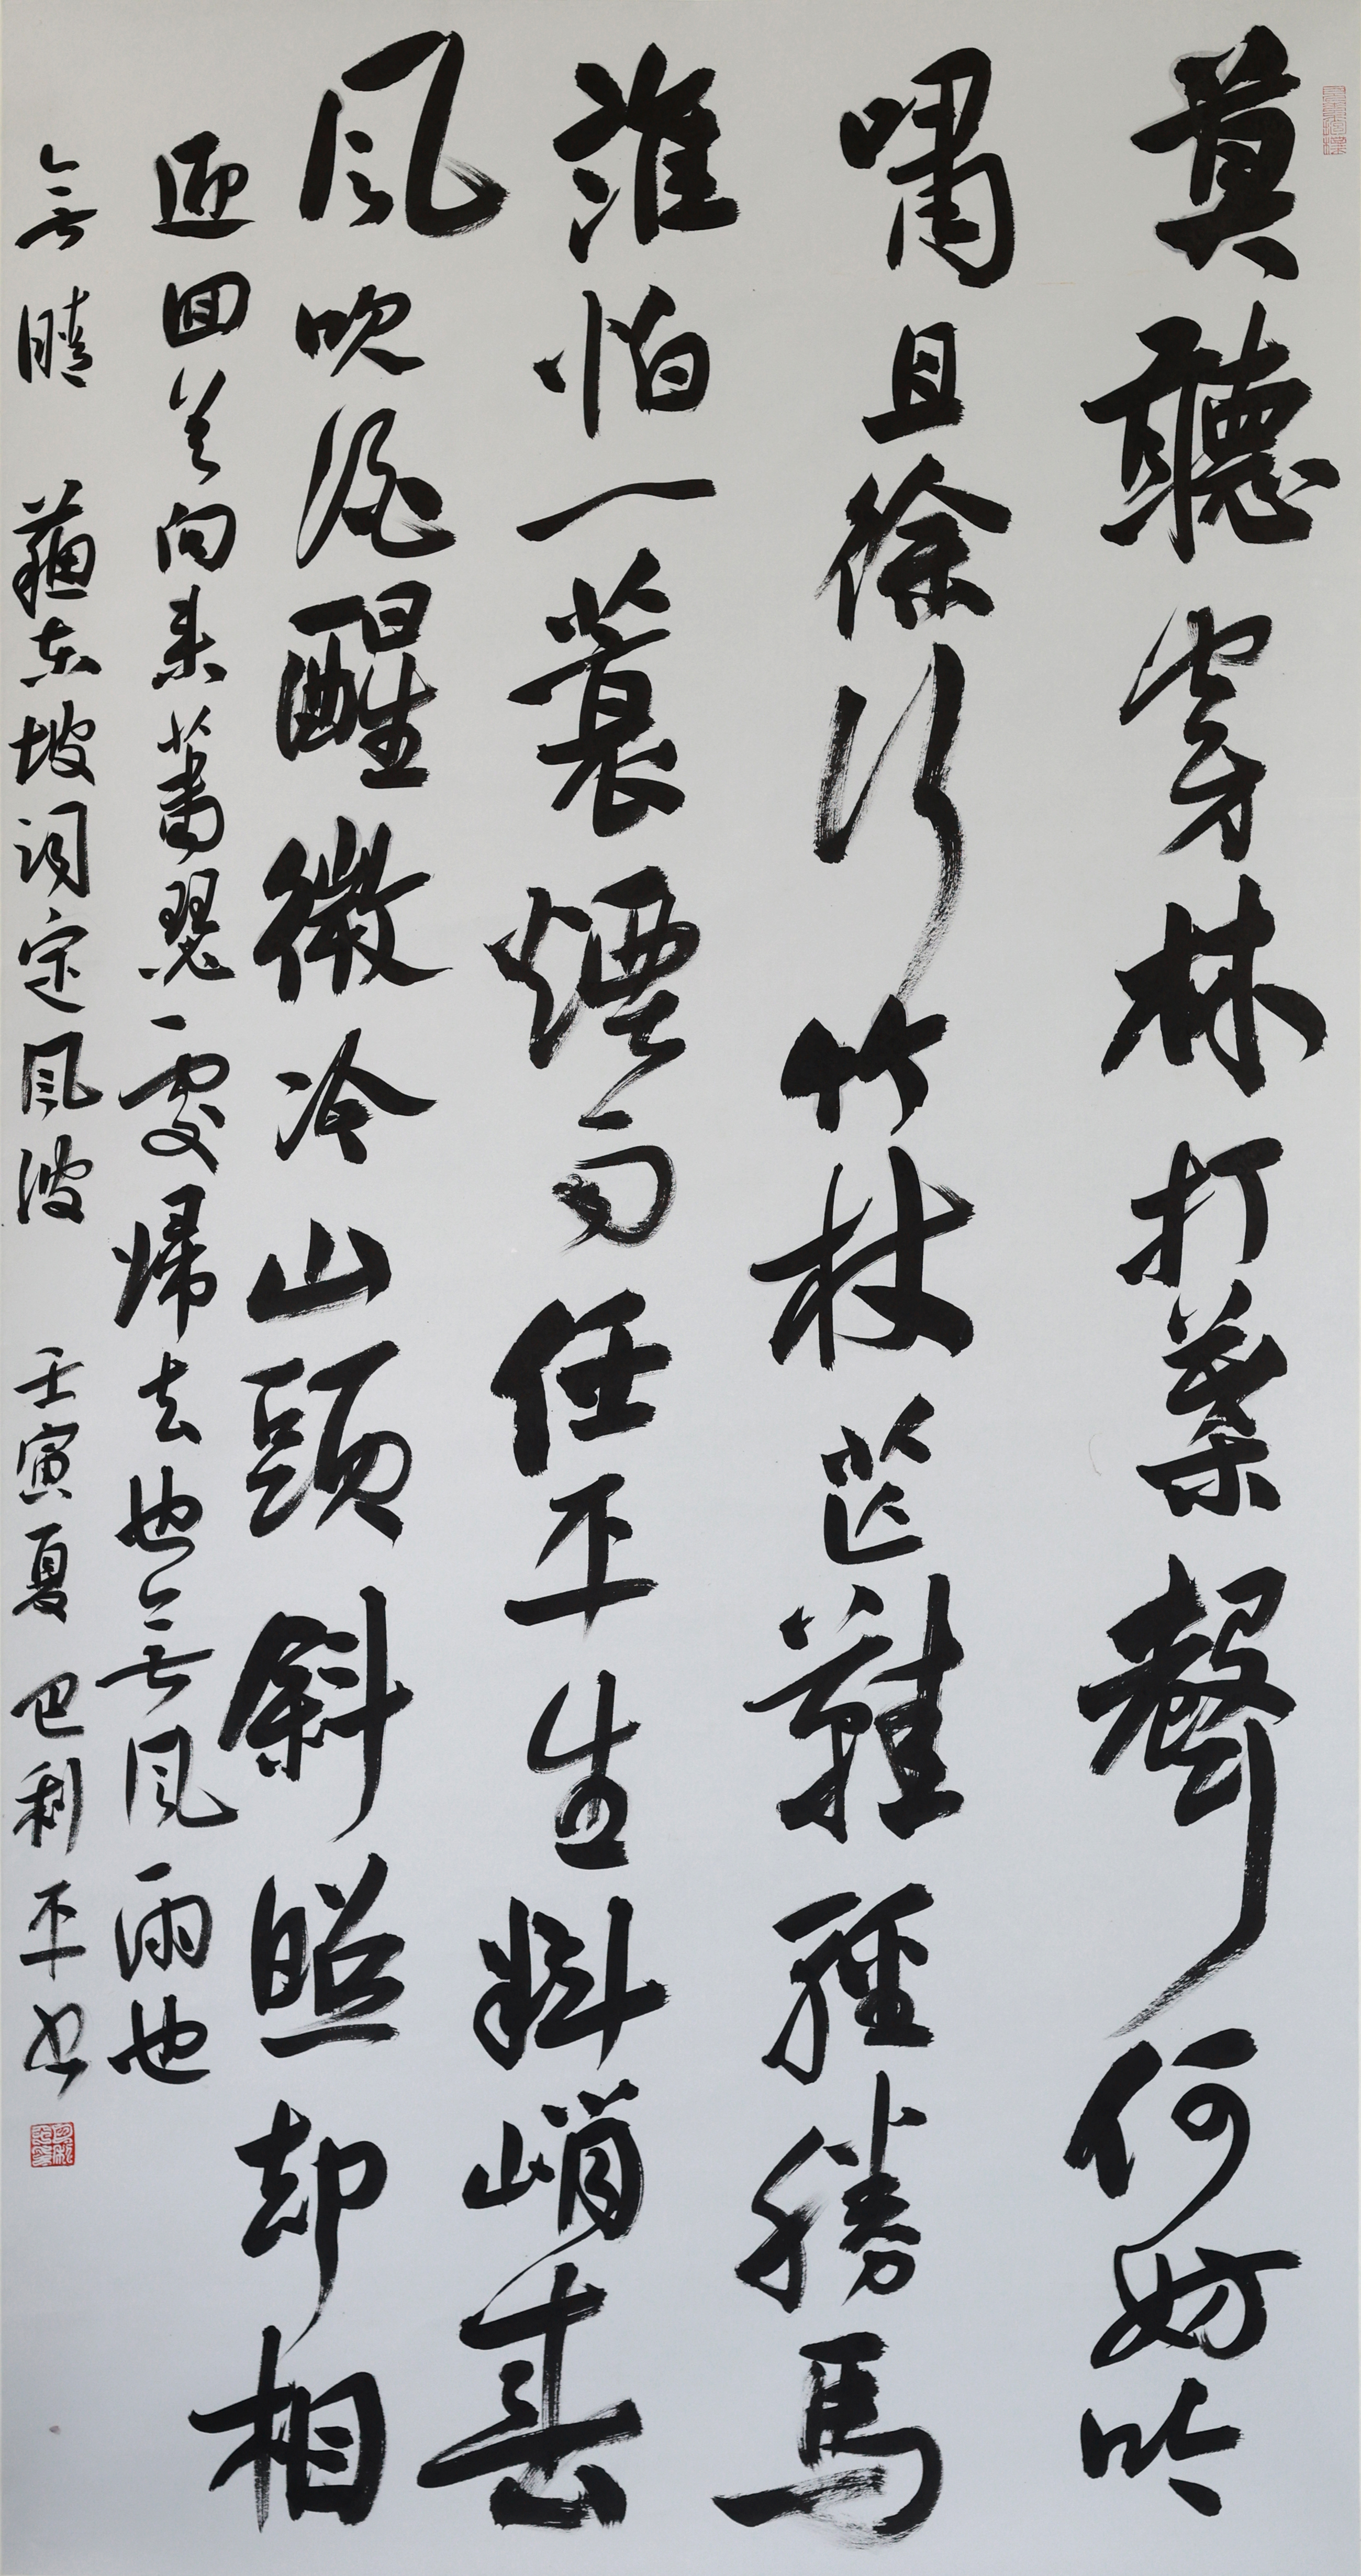 莫聽穿林打葉聲何妨吟
嘯且徐行竹杖芒鞋輕勝馬
誰怕一蓑煙雨任平生料峭春
風吹酒醒微冷山頭斜照却相
迎回首向来蕭瑟處歸去也無風雨也
無晴 蘇東坡詞定風波 壬寅夏 巴利平书